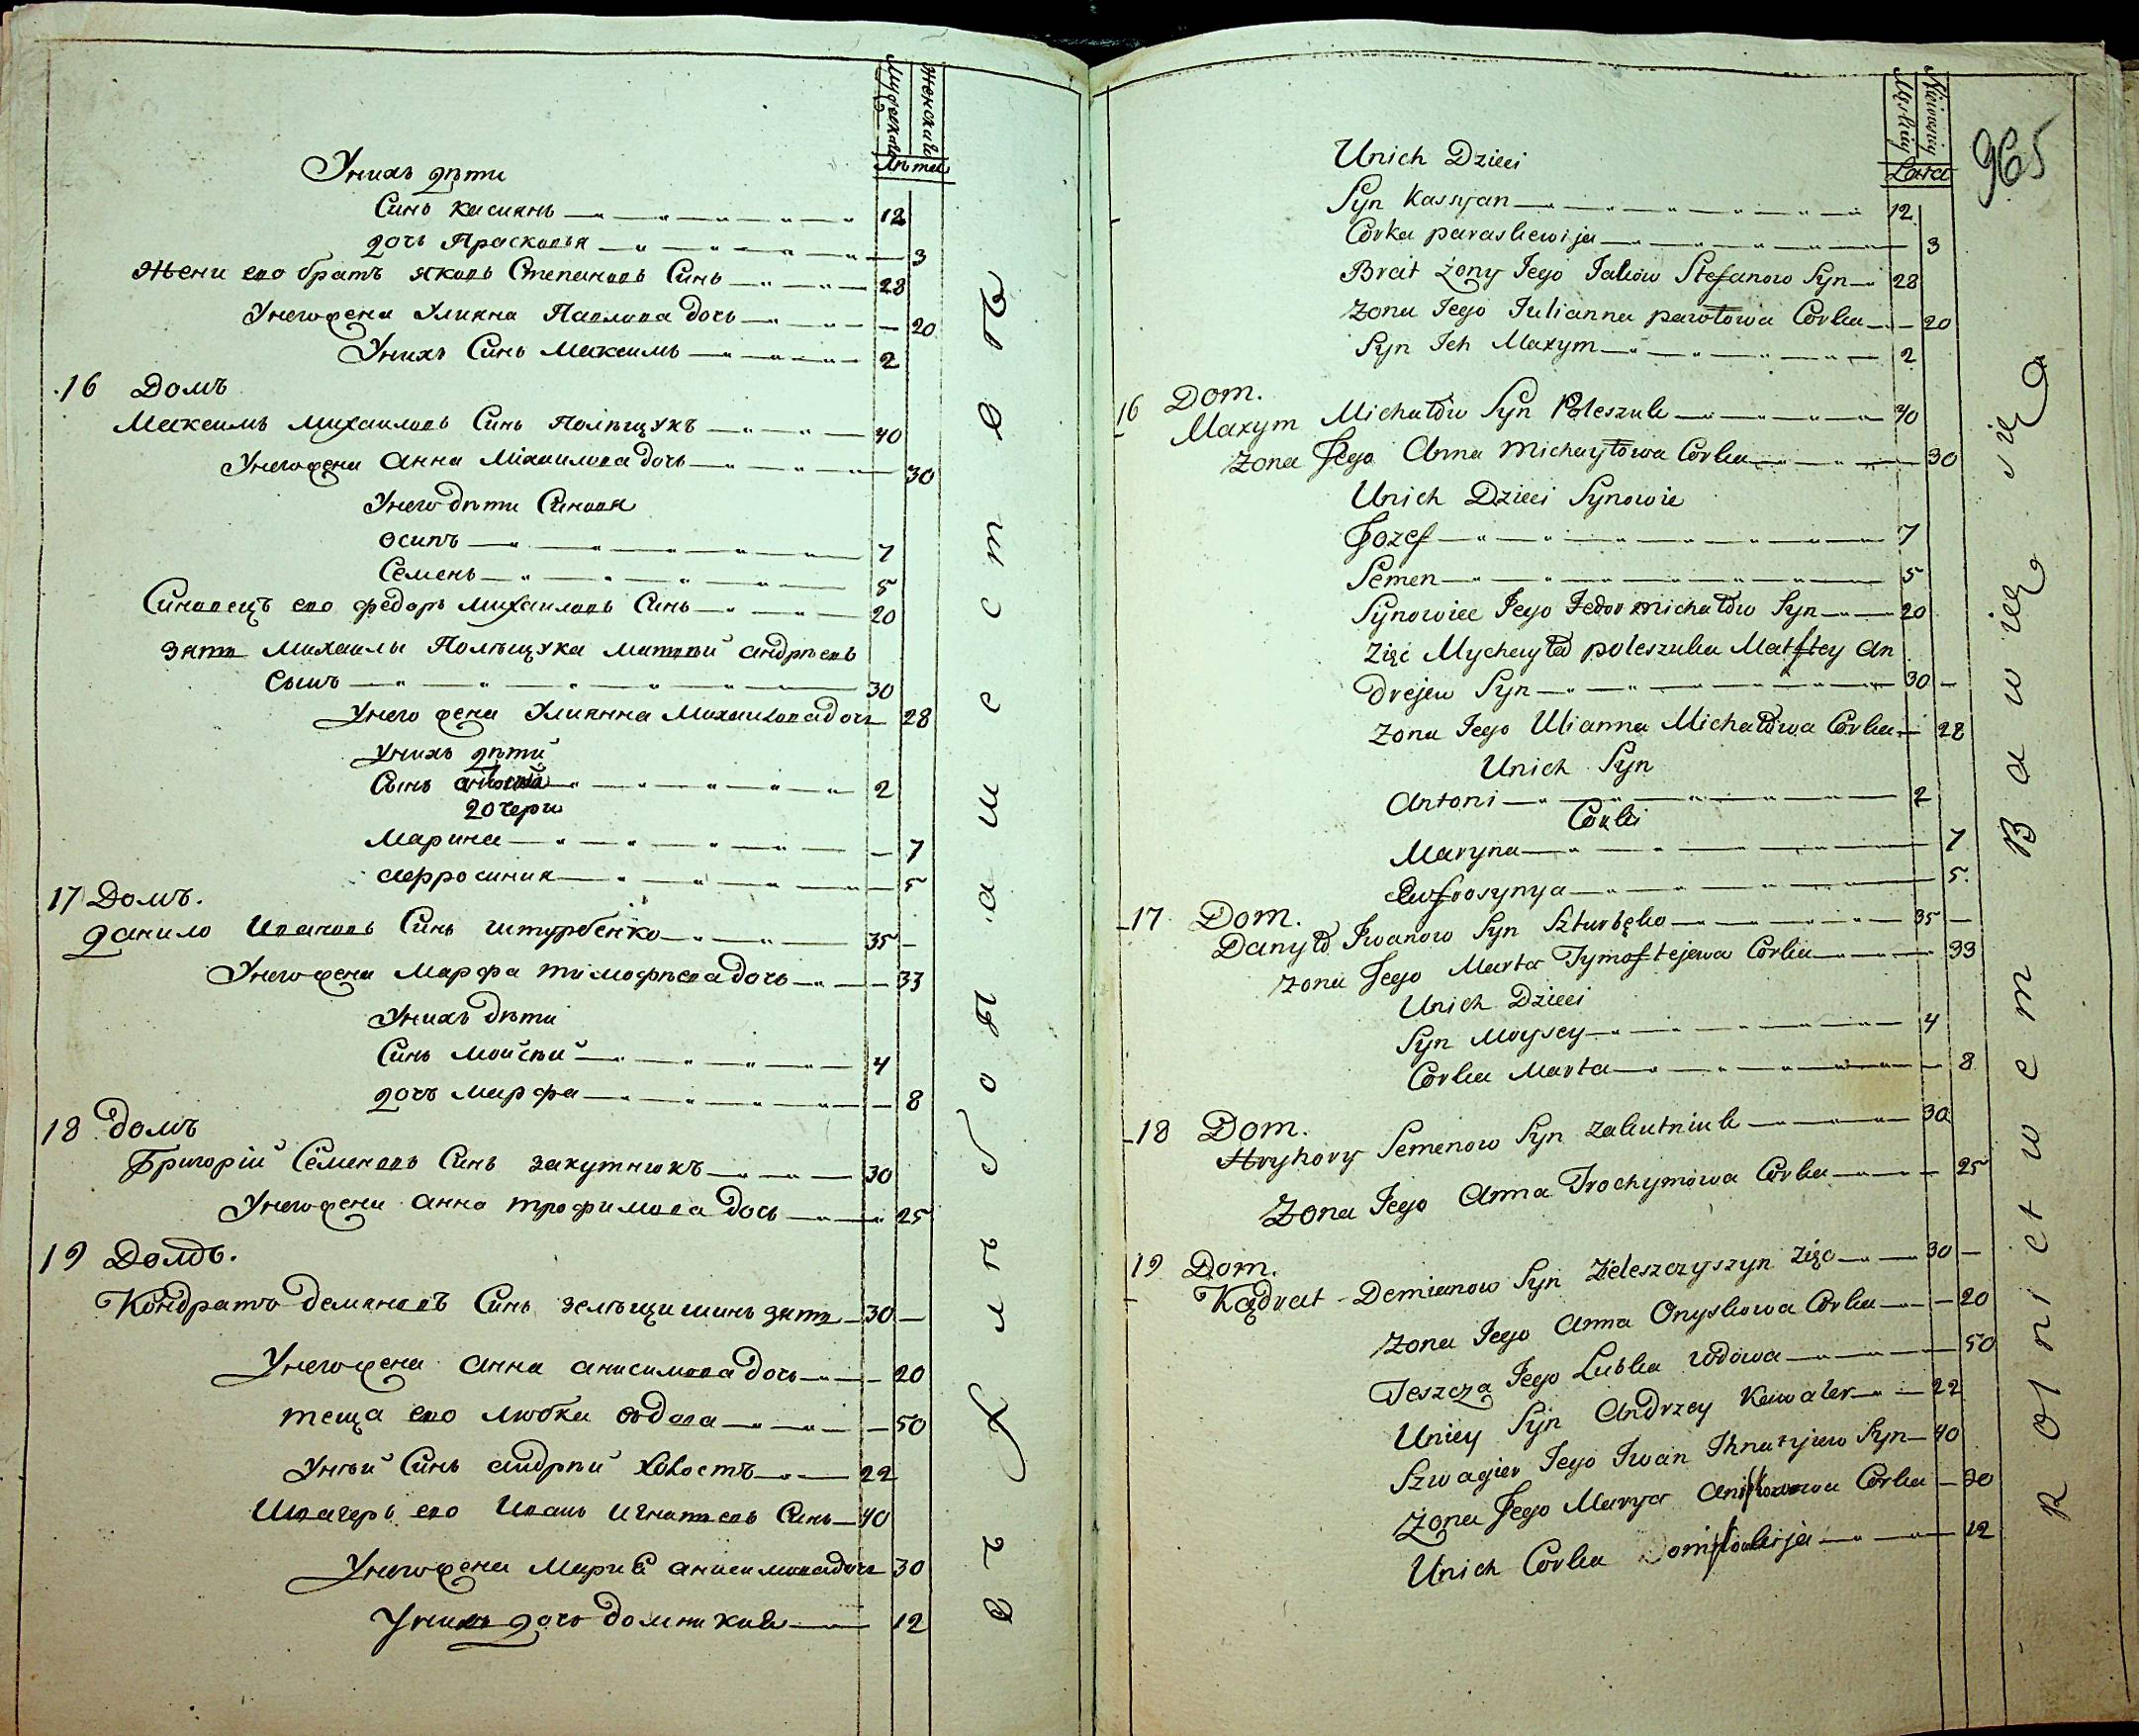 Мужескій
Женскій
Лѣта
Унихъ дѣти
Синъ Касиянъ 12
дочъ Прасковья 3
Жени его братъ Яковъ Степановъ Синъ 28
Унего жена Улияна Павлова дочь 20
Унихъ Синъ Максимъ 2
16 Домъ
Максимъ Михаиловъ Синъ Полѣщукъ 40
Унего жена Анна Міхаилова дочь 30
Унего дѣти Синовя
Осипъ 7
Семенъ 5
Синовецъ его Федоръ Михаиловъ Синъ 20
зять Михаилы Полѣщука Матвѣй Андрѣевъ
Сынъ 30
Унего жена Улианна Михаилова дочь 28
Унихъ дѣти
Сынъ Антоній 2
дочери
Марина 7
Єфросиния 5
17 Домъ.
Данило Ивановъ Синъ Штурбенко 35
Унего жена Марфа Тимофѣева дочь 33
Унихъ дѣти
Синъ Мойсѣй 4
дочъ Марфа 8
18 домъ
Григорій Семеновъ Синъ Закутнюкъ 30
Унего жена Анна Трофимова дочь 25
19 Домъ.
Кондратъ Демяновъ Синъ Зелѣщишинъ зять 30
Унего жена Анна Анисимова дочь 20
теща его Любка вдова 50
Унѣй Синъ Андрѣй Холостъ 22
Швагеръ его Иванъ Игнатевъ Синъ 40
Унего жена Мария Анисимова дочь 30
Унихъ дочь Домникия 12
Жительство
965
Męskiey
Żeńskiey
Lata
Unich Dzieci
Syn Kassyan 12
Corka paraskewija 3
Brat żony Jego Jakow Stefanow Syn 28
Zona Jego Julianna pawłowa Corka 20
Syn Ich Maxym 2
16 Dom.
Maxym Michałow Syn Poleszuk 40
Zona Jego Anna Michayłowa Corka 30
Unich Dzieci Synowie
Jozef 7
Semen 5
Synowiec Jego Fedor Michałow Syn 20
Zięć Mychayła poleszuka Matftey An
drejew Syn 30
Zona Jego Ulianna Michałowa Corka 28
Unich Syn
Antoni 2
Corki
Maryna 7
Eufrosynya 5.
17 Dom.
Danyło Iwanow Syn Szturbęko 35
Zona Jego Marta Tymoftejewa Corka 33
Unich Dzieci
Syn Moysey 4
Corka Marta 8
18 Dom.
Hryhory Semenow Syn Zakutniuk 30
Zona Jego Anna Trochymowa Corka 25
19 Dom.
Kądrat Demianow Syn Zieleszczyszyn Zięc 30
Zona Jego Anna Onyskowa Corka 20
Teszcza Jego Lubka wdowa 50
Uniey Syn Andrzey Kawaler 22
Szwagier Jego Iwan Ihnatyiew Syn 40
Zona Jego Marya Corka 30
Unich Corka 12
Rolnictwem Bawię się